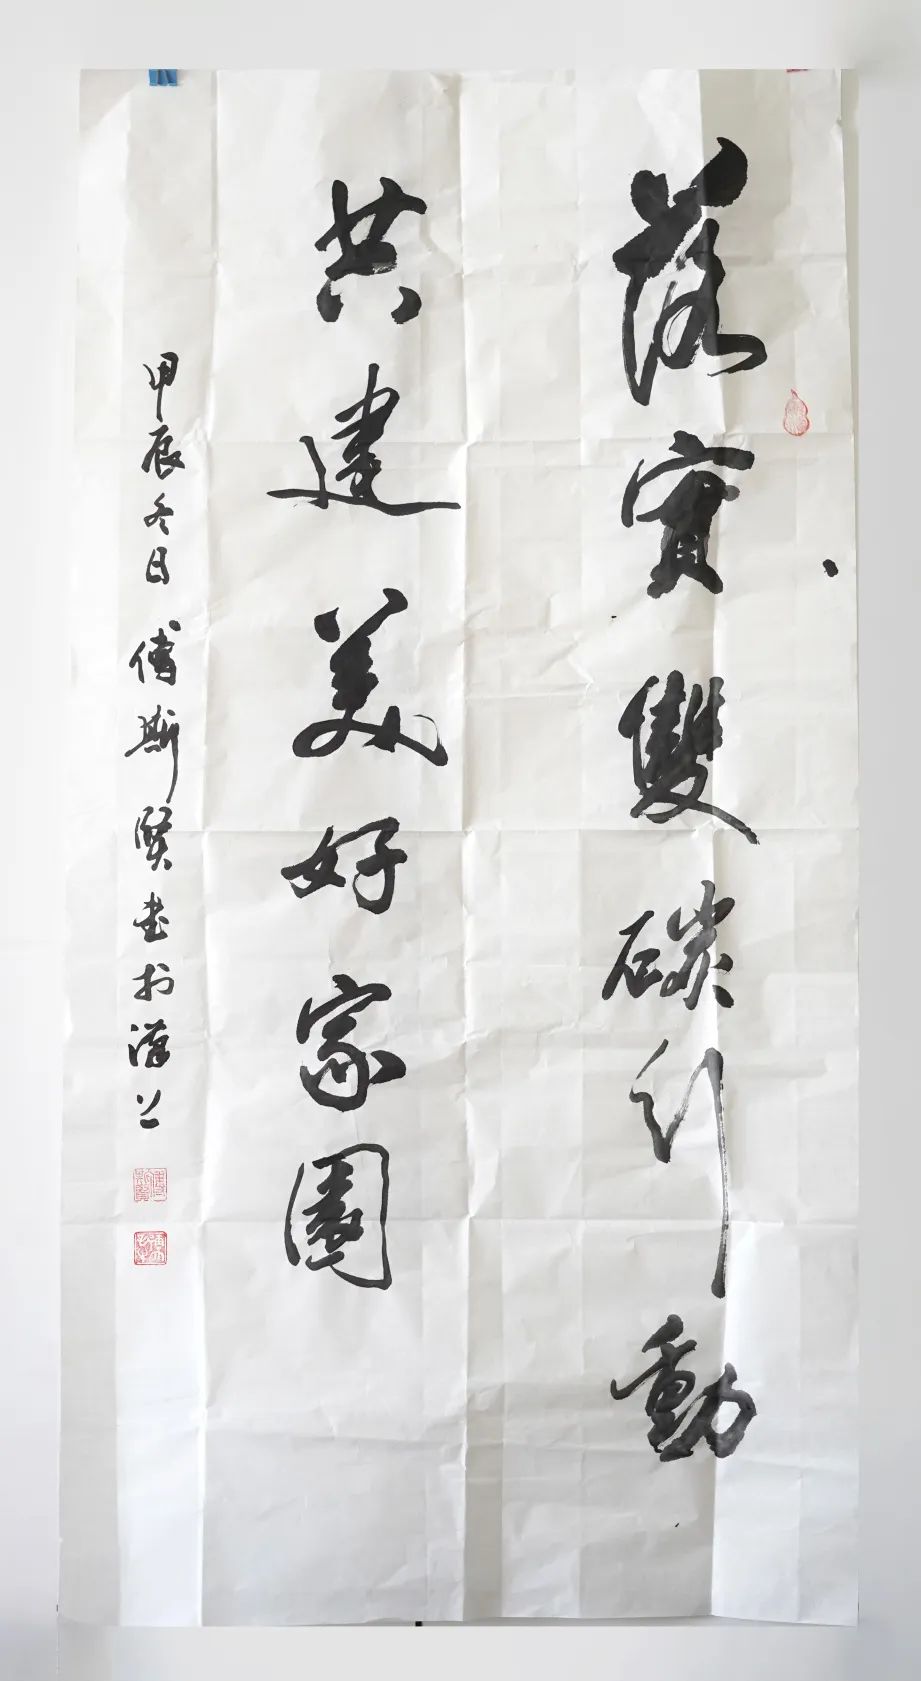 落實雙碳行動
共建美好家園
甲辰冬日傅斯賢書於漢上